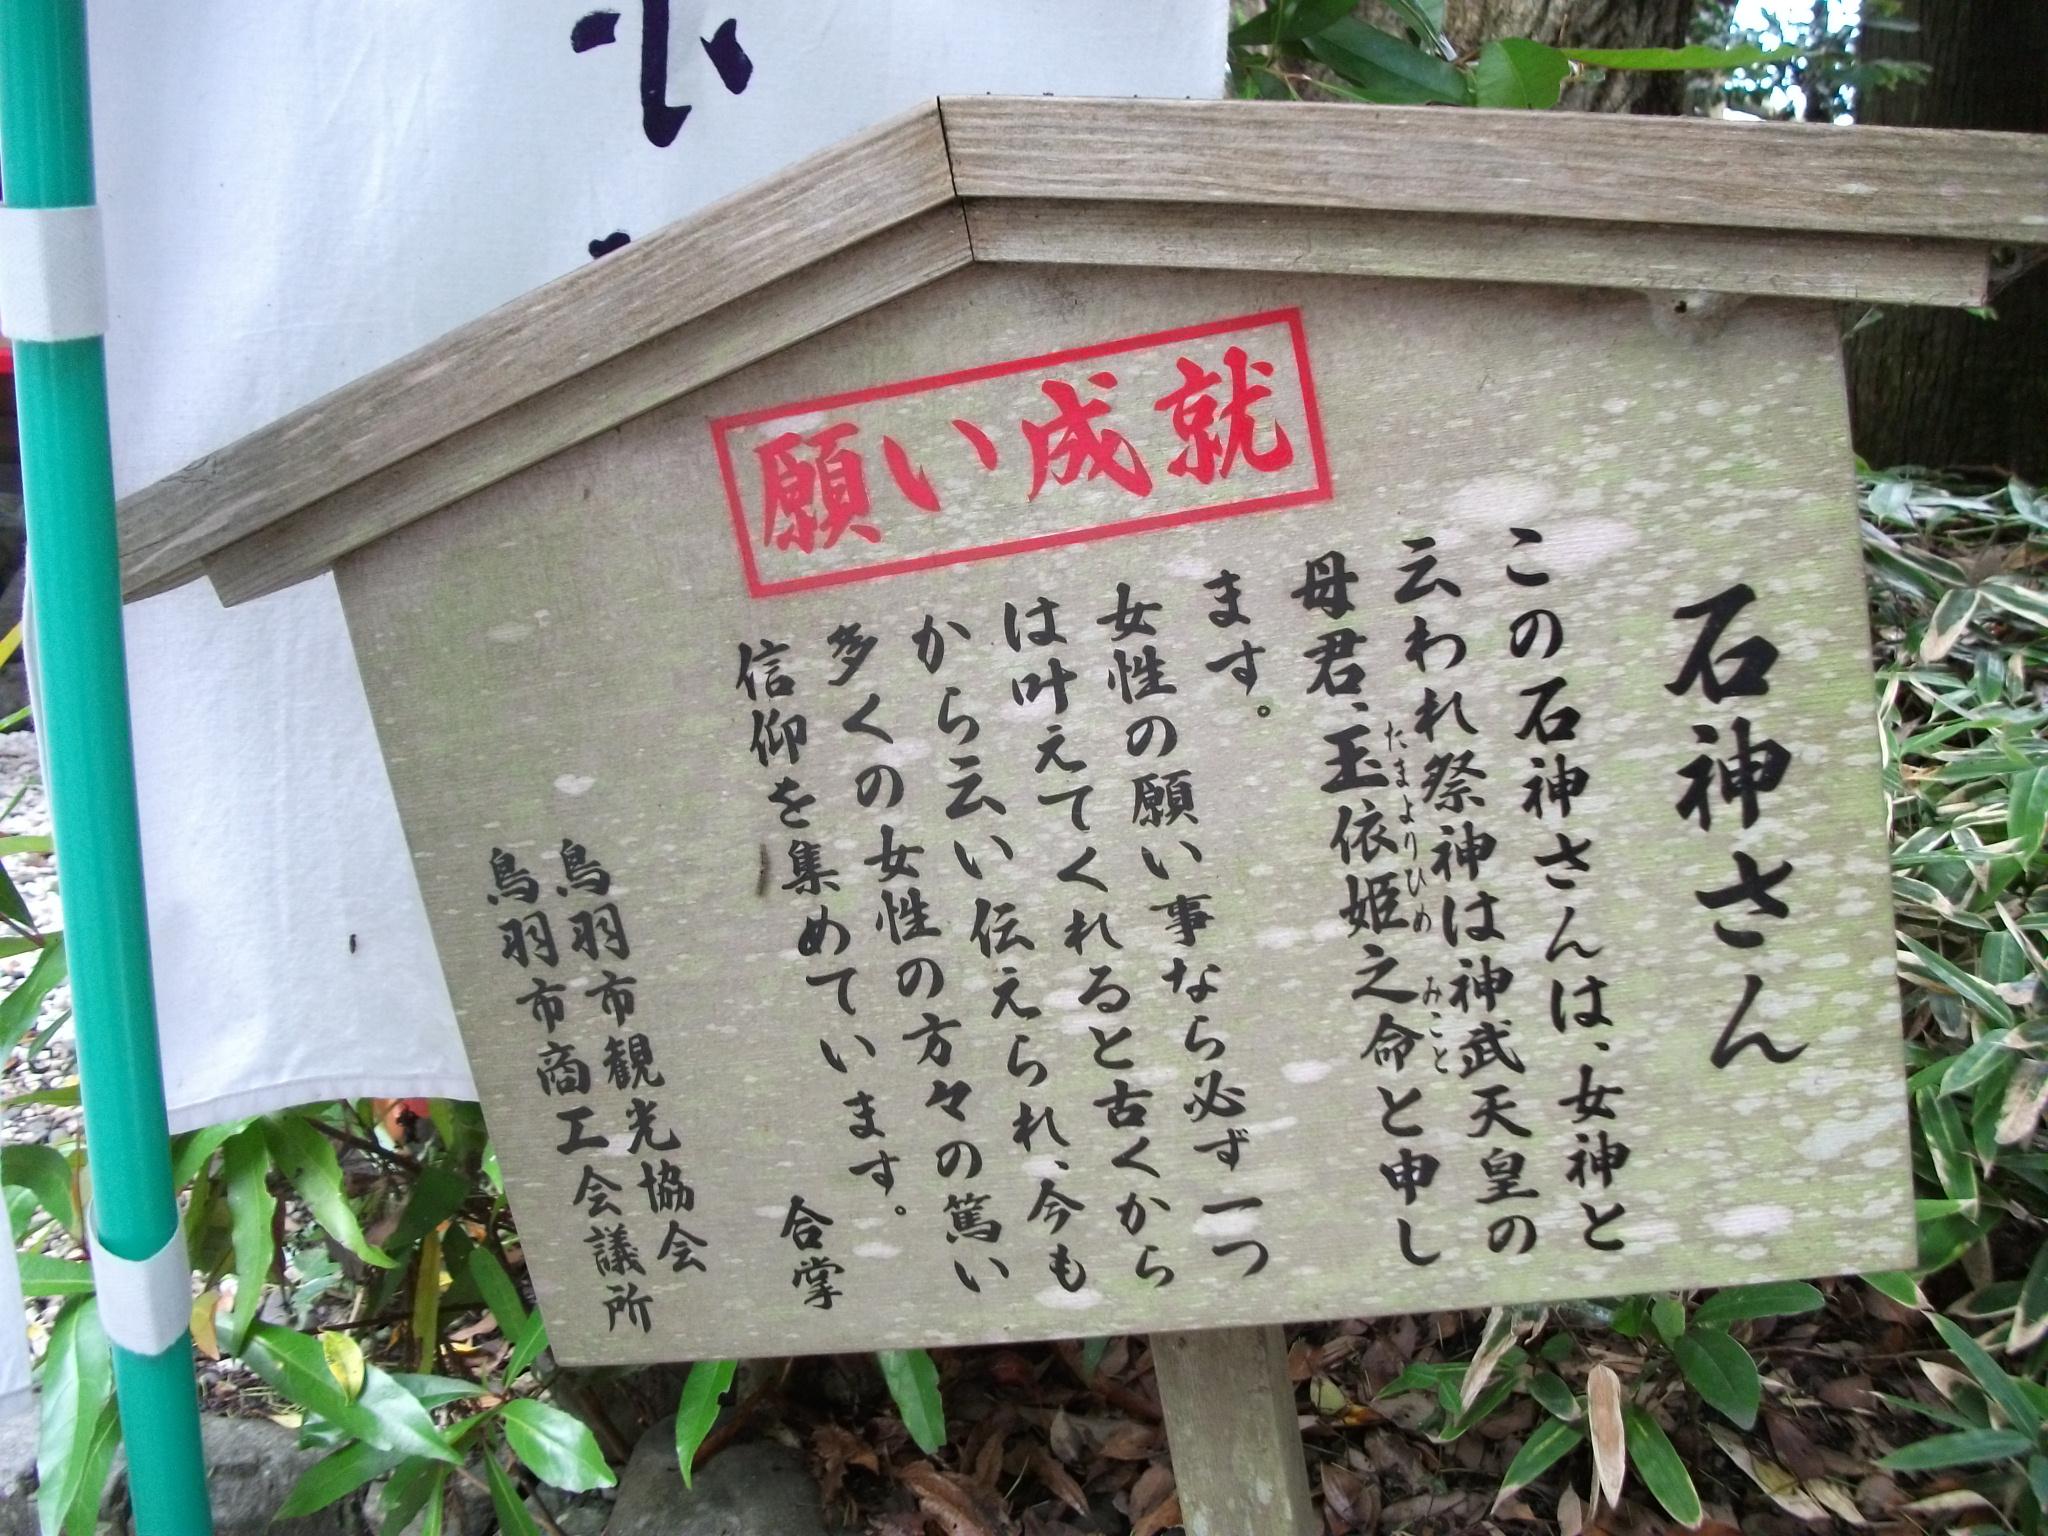 願い成就
石神さん
この石神さんは、女神と
云われ祭神は神武天皇の
母君、玉依姫之命と申し
たまよりひめ みこと
ます。
女性の願い事なら必ず一つ
は叶えてくれると古くから
から云い伝えられ、今も
多くの女性の方々の篤い
信仰を集めています。
合掌
鳥羽市観光協会
鳥羽市商工会議所